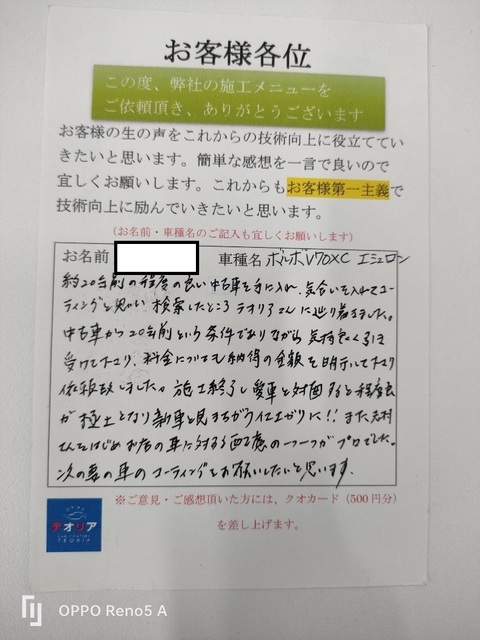 お客様各位
この度、弊社の施工メニューを
ご依頼頂き、ありがとうございます
お客様の生の声をこれからの技術向上に役立ててい
きたいと思います。簡単な感想を一言で良いので
宜しくお願いします。これからもお客様第一主義で
技術向上に励んでいきたいと思います。
(お名前・車種名のご記入も宜しくお願いします)
お名前 車種名 ボルボV70XC エミュロン
約20年前の程度の良い中古車を手に入れ、気合いを入れてコー
ティングと思い検索したところテオリアさんに辿り着きました。
中古車かつ20年前という条件でありながら気持良く引き
受けて下さり、料金についても納得の金額を明示して下さり
依頼致しました。施工終了し愛車と対面すると程度良
が極上となり新車と見まがう仕上がりに!!また
さんをはじめお店の車に対する の一つ一つがプロでした。
次の妻の車のコーティングもお願いしたいと思います。
※ご意見・ご感想頂いた方には、クオカード(500円分)
を差し上げます。
テオリア
CAR COATING
TEORIA
OPPO Reno5 A